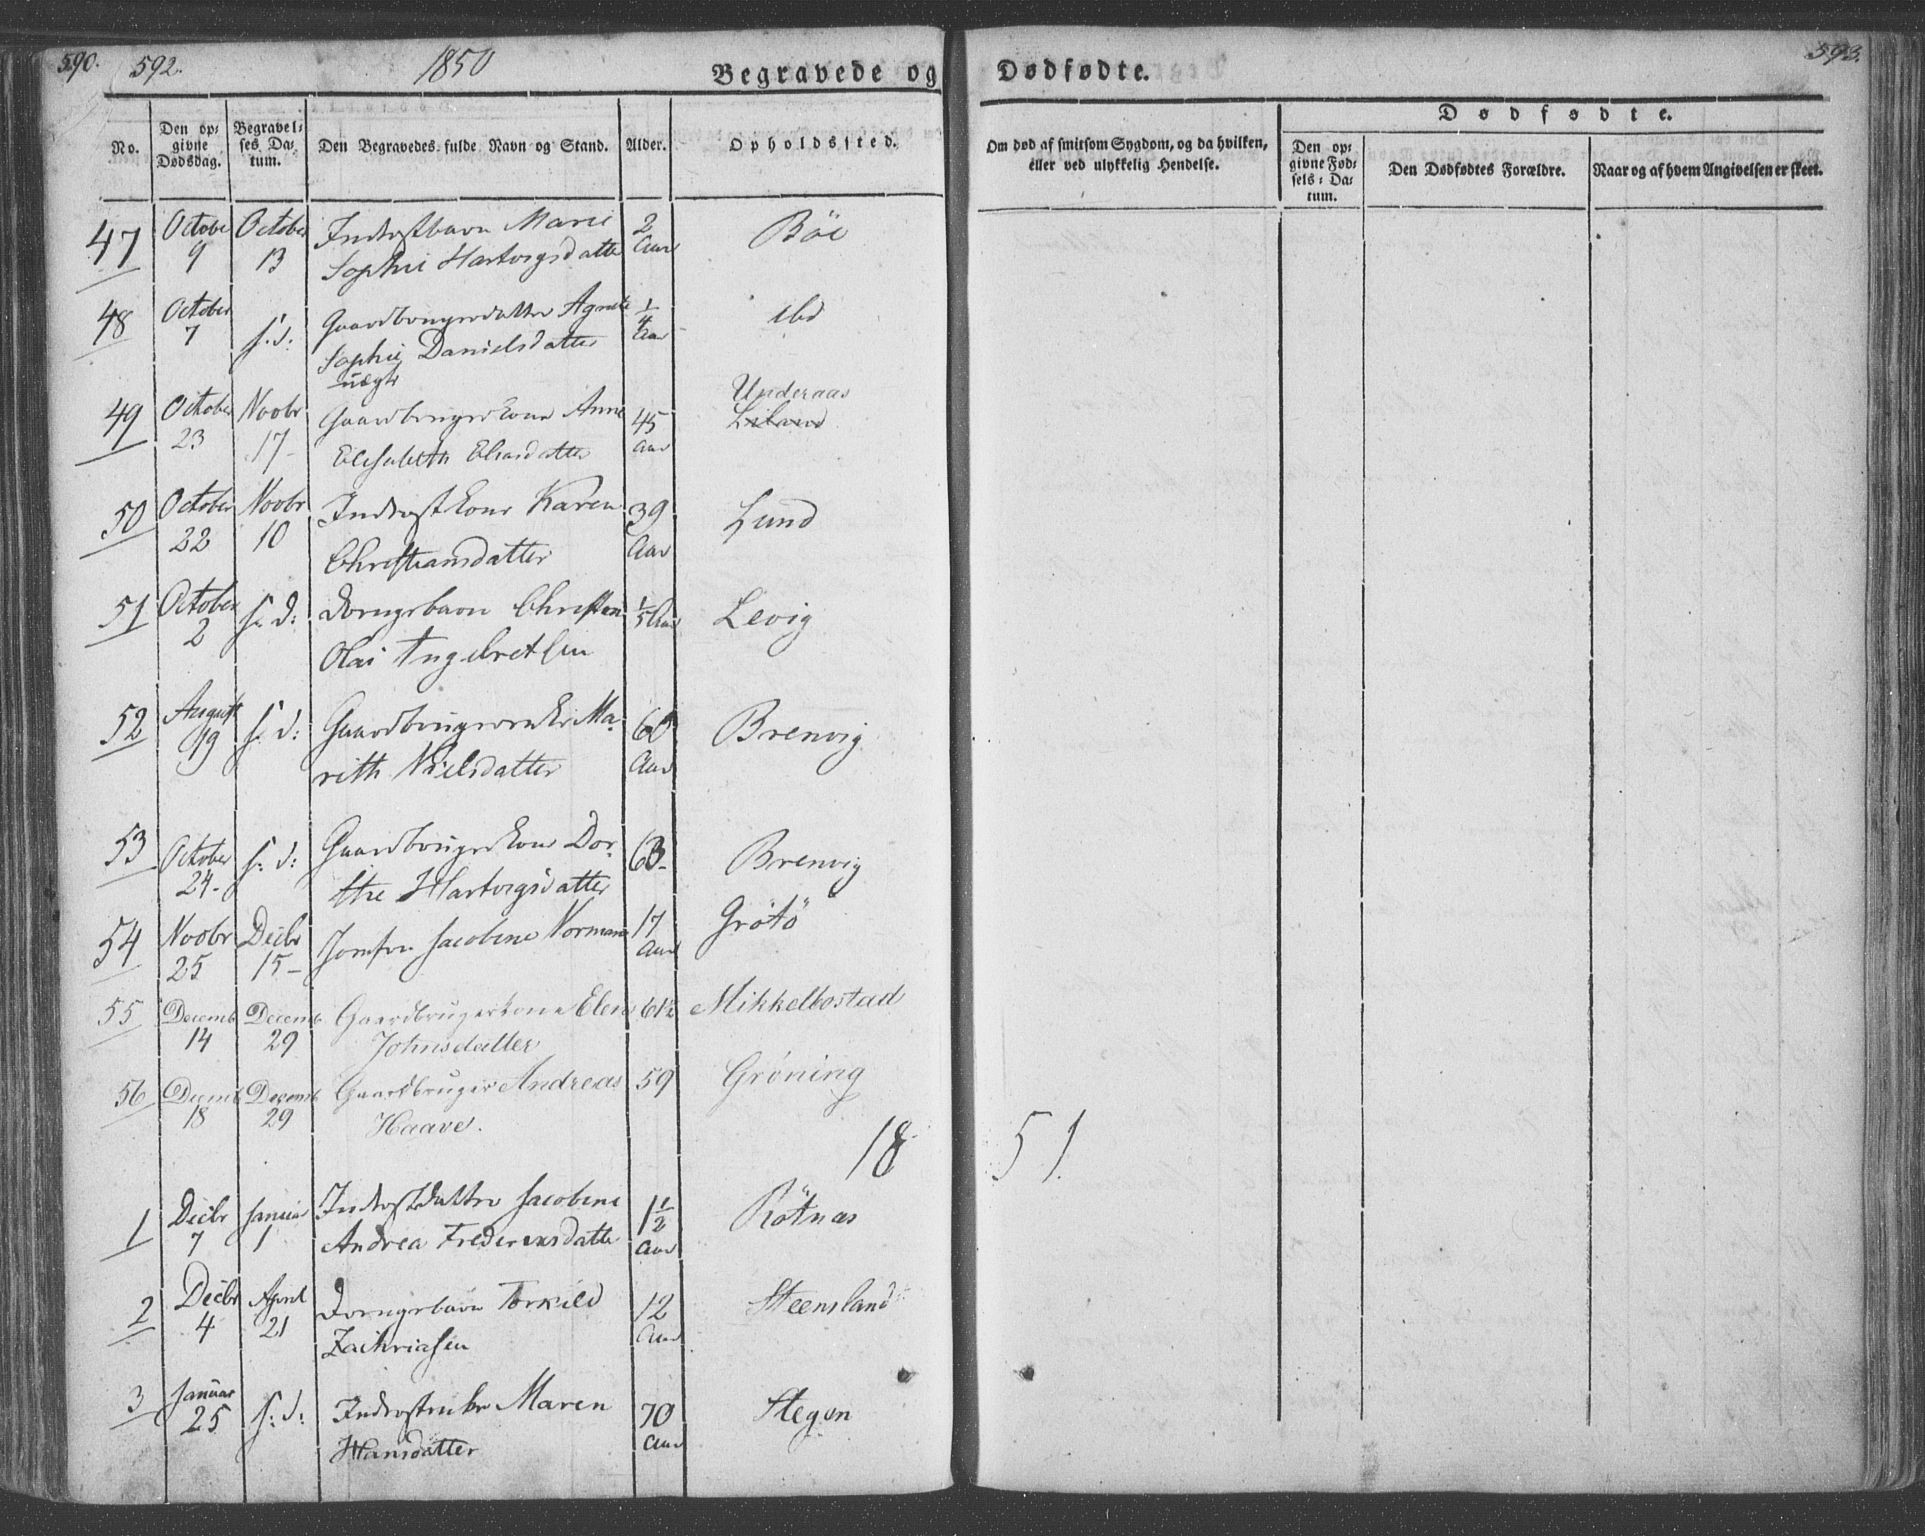 590. 592. 1850 593.
Begravede og Dødfødte.
No.
Den op-
givne
Dødsdag.
Begravel-
ses Da-
tum.
Den Begravedes fulde Navn og Stand.
Alder.
Opholdssted.
Om død af smitsom Sygdom, og da hvilken,
eller ved ulykkelig Hendelse.
Dødfødte.
Den op-
givne Fød-
sels-Da-
tum.
Den Dødfødtes Forældre.
Naar og af hvem Angivelsen er skeet.
47 October October Inderstbarn Marie 2 Böe
9 13 Sophie Hartvigsdatte Aar
48 October s: d: Gaardbrugerdatter Agnete 1/4 ibd
7 Sophie Danielsdatter Aar
uægte
49 October Novbr Gaardbrugerkone Anne 45 Underaas
23 17 Elisabeth Eliasdatter Aar
50 October Novbr Inderstkone Karen 39 Lund
22 10 Christiansdatter Aar
51 October s: d: Drengebarn Christen 1/5 Aar Levig
2 Olai Ingebretsen
52 August s: d: Gaardbrugerenke Ma- 60 Brenvig
19 rith Nielsdatter Aar
53 October s: d: Gaardbrugerkone Dor- 63 Brenvig
24 thе Hartvigsdatter
54 Novbr Decbr Jomfru Jacobine Normann 17 Grötö
25 15 Aar
55 Decemb Decemb Gaardbrugerkone Elen 61½ Mikkelbostad
14 29 Johnsdatter
56 Decemb Decemb Gaardbruger Andreas 59 Gröning
18 29 Haave.
18 51.
1 Decbr Januar Inderstdatter Jacobine 1½ Rötnæs
7 1 Andrea Frederiksdatte Aar
2 Decbr April Drengebarn Torkild 12 Steensland
4 21 Zachriasen Aar
3 Januar s: d: Inderstenke Maren 70 Stegen
25 Hansdatter Aar